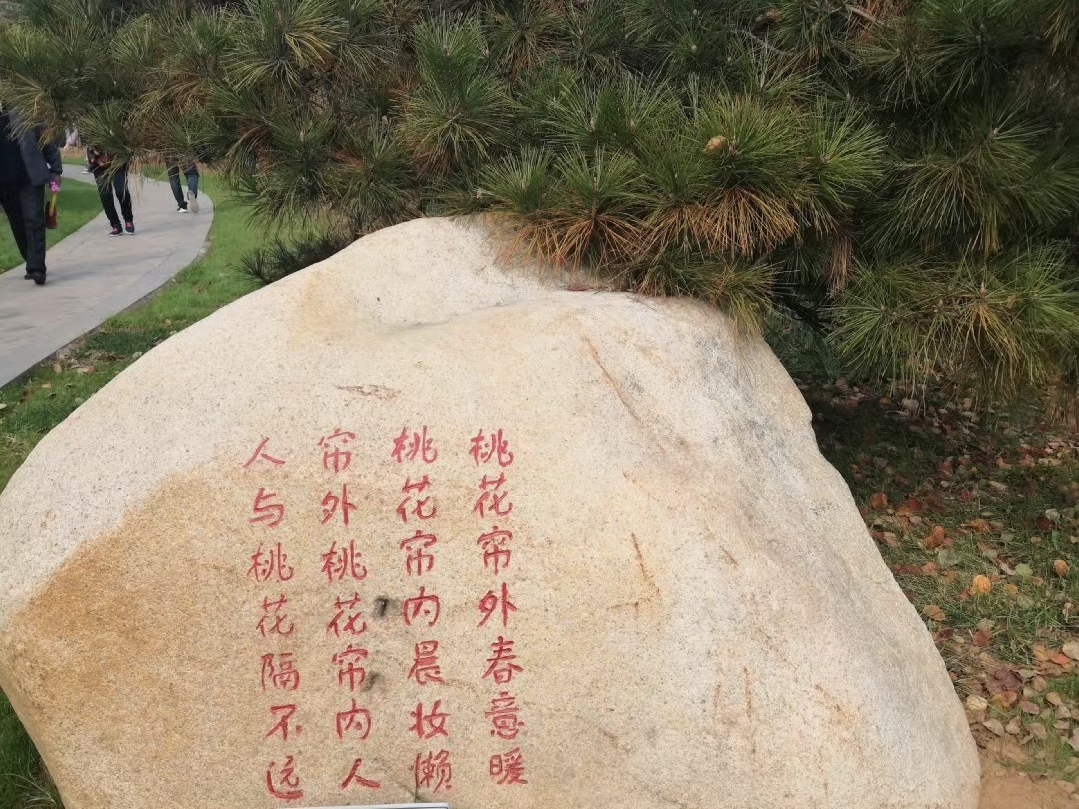 桃花帘外春意暖
桃花帘内晨妆懒
帘外桃花帘内人
人与桃花隔不远